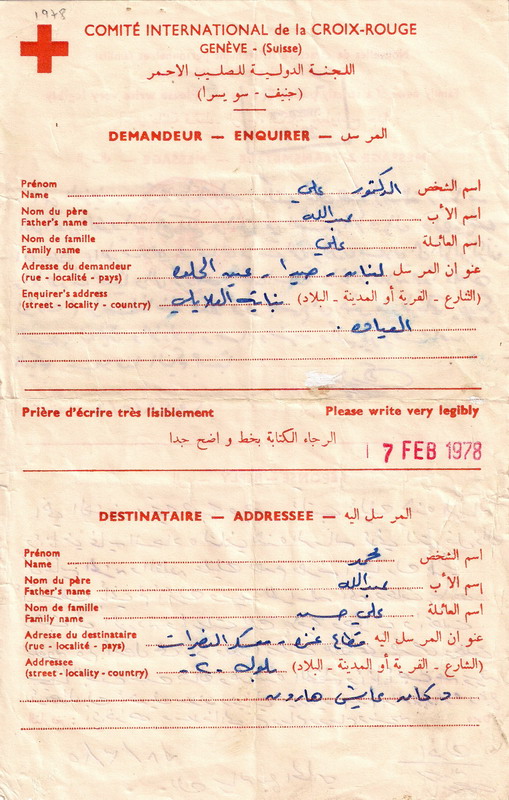 1978
COMITÉ INTERNATIONAL de la CROIX-ROUGE
GENÈVE - (Suisse)
اللجنة الدولية للصليب الاحمر
(جنيف - سويسرا)
DEMANDEUR — ENQUIRER — المرسل
Prénom
Name الدكتور علي اسم الشخص
Nom du père
Father's name عبدالله اسم الأب
Nom de famille
Family name علي اسم العائلة
Adresse du demandeur
(rue - localité - pays) لبنان - صيدا - عين الحلوه عنوان المرسل
Enquirer's address
(street - locality - country) بناية العلايلي (الشارع - القرية أو المدينة - البلاد)
العياده .
Prière d'écrire très lisiblement Please write very legibly
الرجاء الكتابة بخط واضح جدا
17 FEB 1978
DESTINATAIRE — ADDRESSEE — المرسل اليه
Prénom
Name محمد اسم الشخص
Nom du père
Father's name عبدالله اسم الأب
Nom de famille
Family name علي حسن اسم العائلة
Adresse du destinataire
(rue - localité - pays) قطاع غزه - معسكر النصيرات عنوان المرسل اليه
Addressee
(street - locality - country) بلوك - ٢ - (الشارع - القرية أو المدينة - البلاد)
دكان عايش هارون